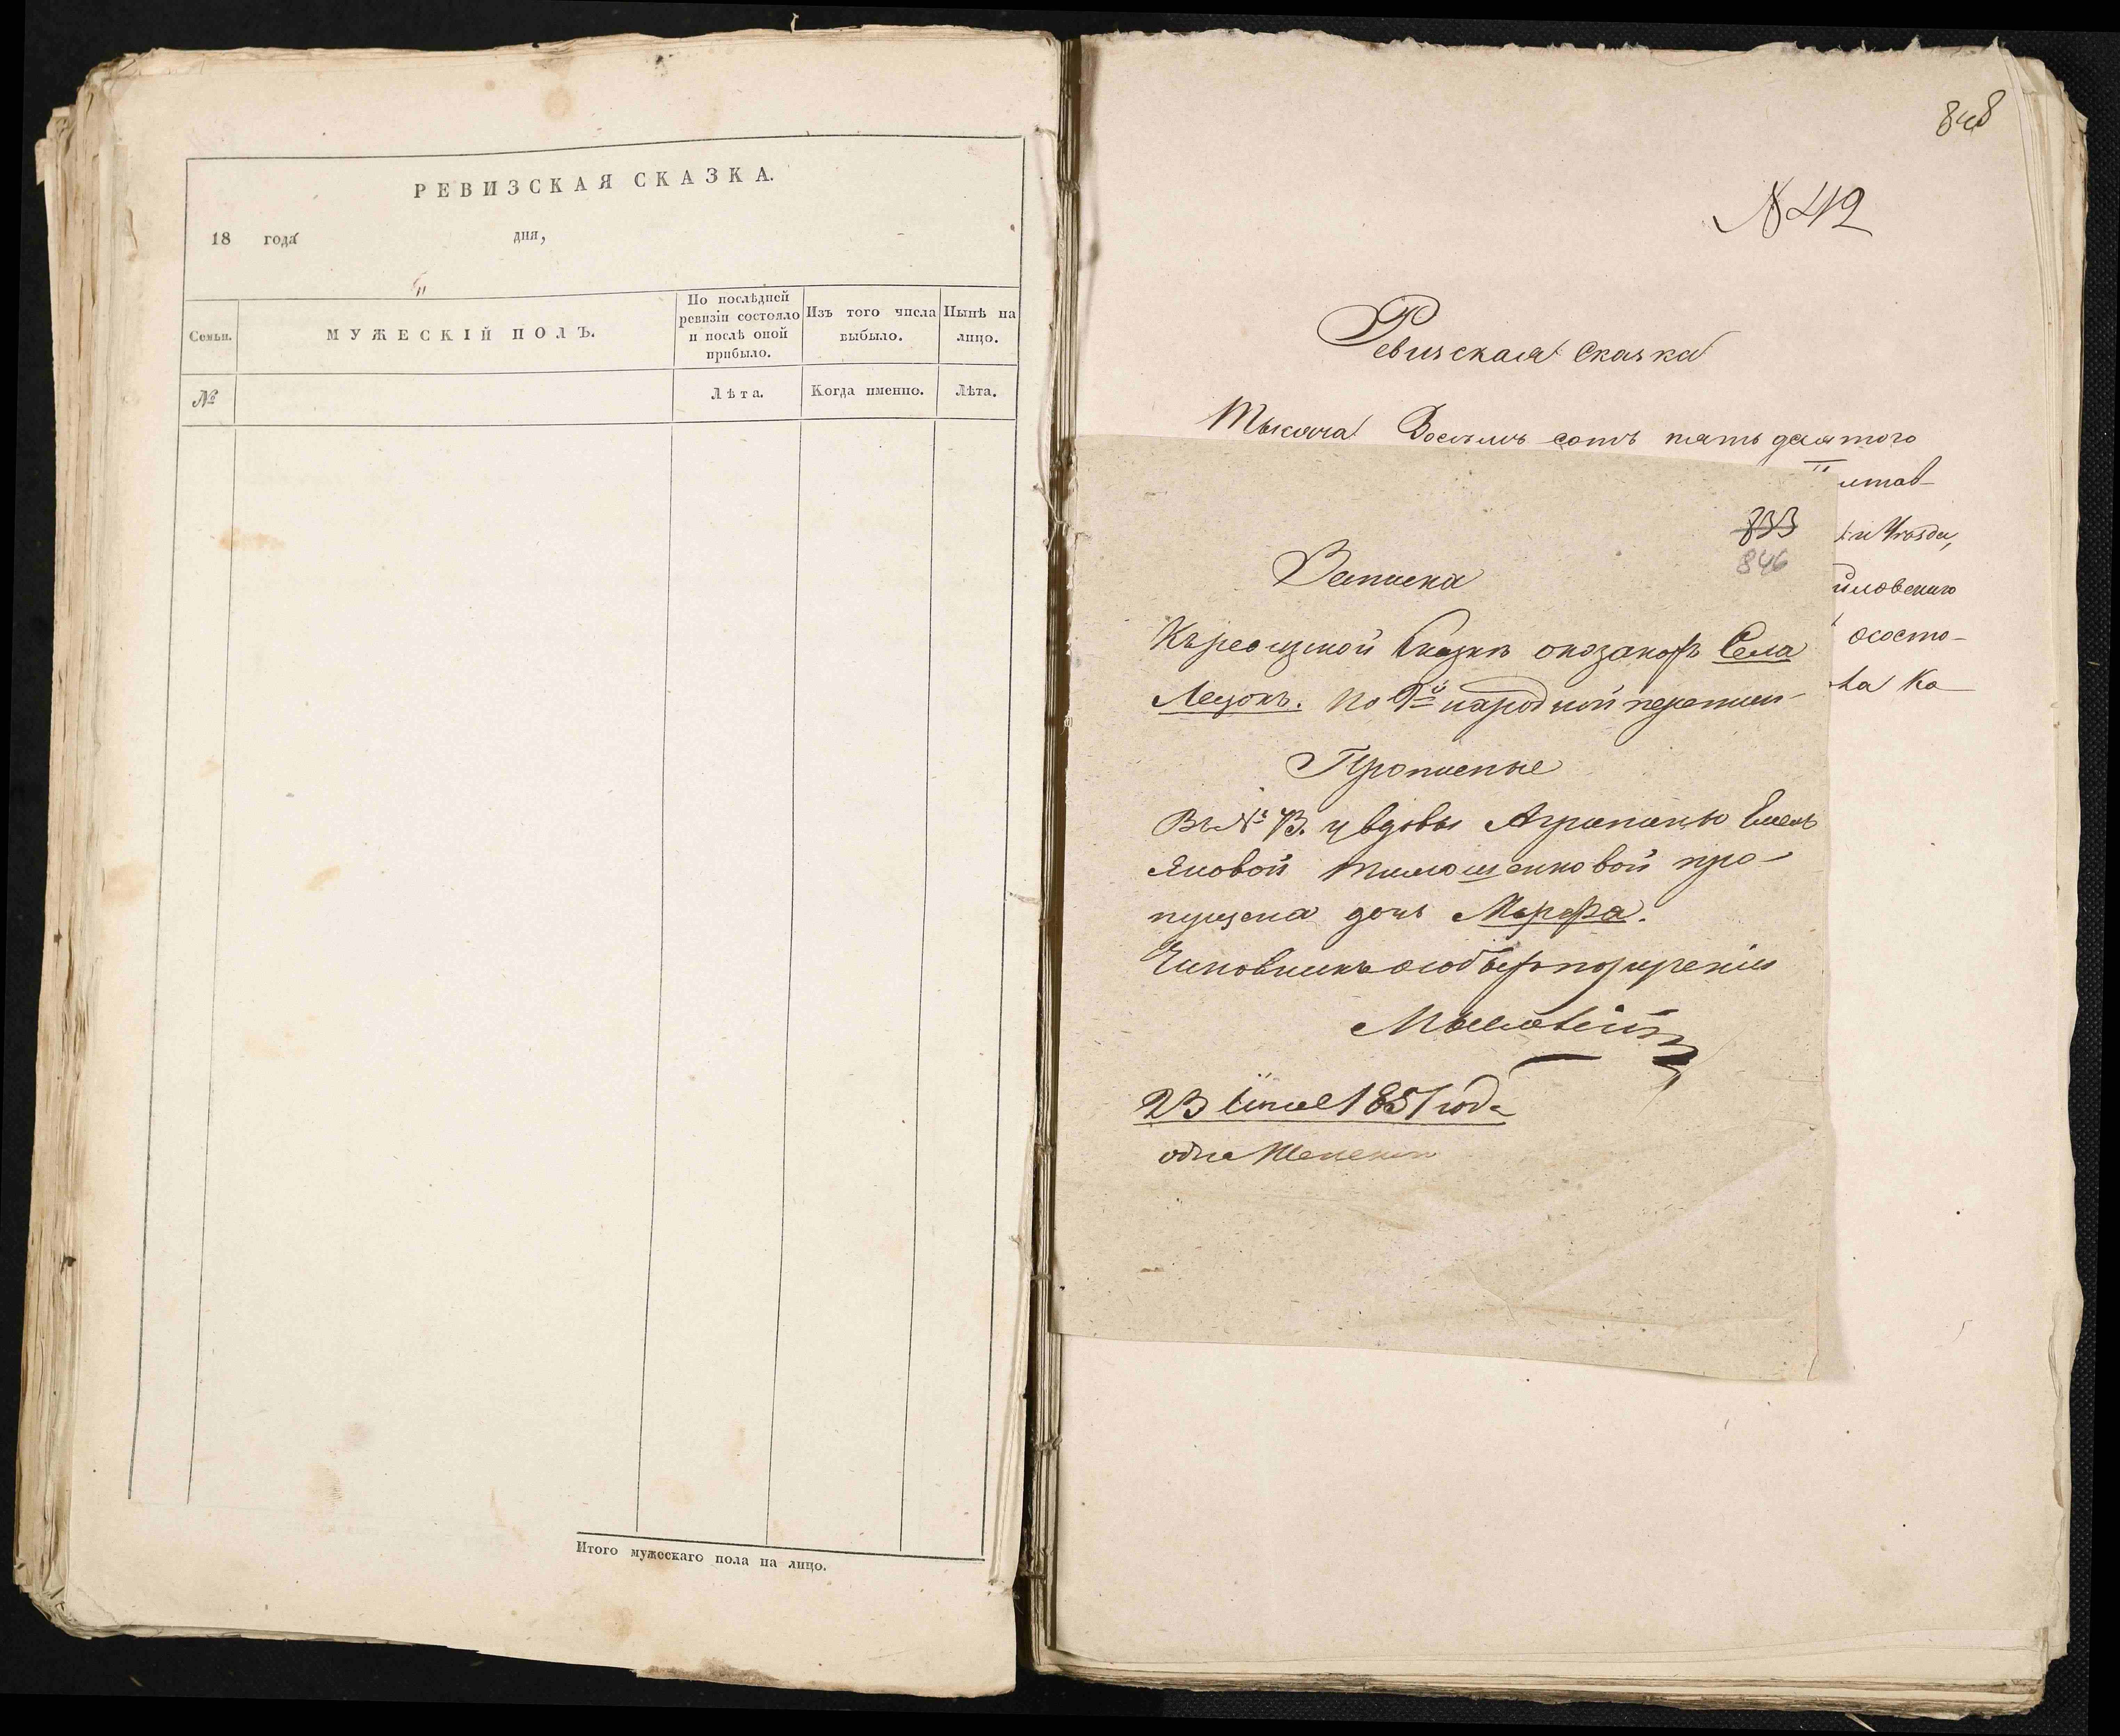 РЕВИЗСКАЯ СКАЗКА.
18 года дня,
Семьи.
МУЖЕСКІЙ ПОЛЪ.
По послѣдней ревизіи состояло и послѣ оной прибыло.
Изъ того числа выбыло.
Нынѣ на лицо.
№
Лѣта.
Когда именно.
Лѣта.
Итого мужескаго пола на лицо.
848
Ревизская сказка
Тысяча Восемь сотъ пятьдесятого
итав-
осото-
ла Ка-
846
Записка
Къ ревизской сказкѣ казаковъ Села
По 9й народной переписи
Прописные
Въ № 73. у вдовы Агрипины Емель
яновой Тимошенковой про-
пущена дочь Марфа.
Чиновникъ особыхъ порученій
23 1851 года
одна Женскаго